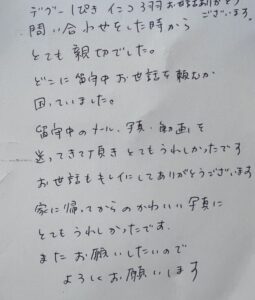 デグー1ぴき インコ3羽 お世話ありがとうございます。
問い合わせをした時から
とても親切でした。
どこに留守中お世話を頼むか
困っていました。
留守中のメール、写真・動画を
送ってきて頂き とてもうれしかったです
お世話もキレイにしてありがとうございます
家に帰ってからのかわいい写真に
とてもうれしかったです.
またお願いしたいので
よろしくお願いします